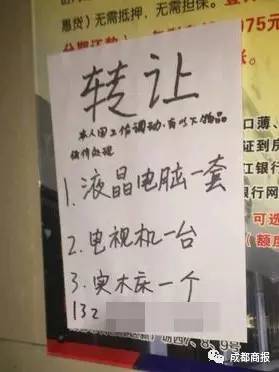 惠贷）无需抵押，无需担保。
975元
转让
本人因工作调动，有以下物品
低价处理
1.液晶电脑一套
2.电视机一台
3.实木床一个
132
口薄、
证到房
江银行
银行网
可选
（额度
成都商报